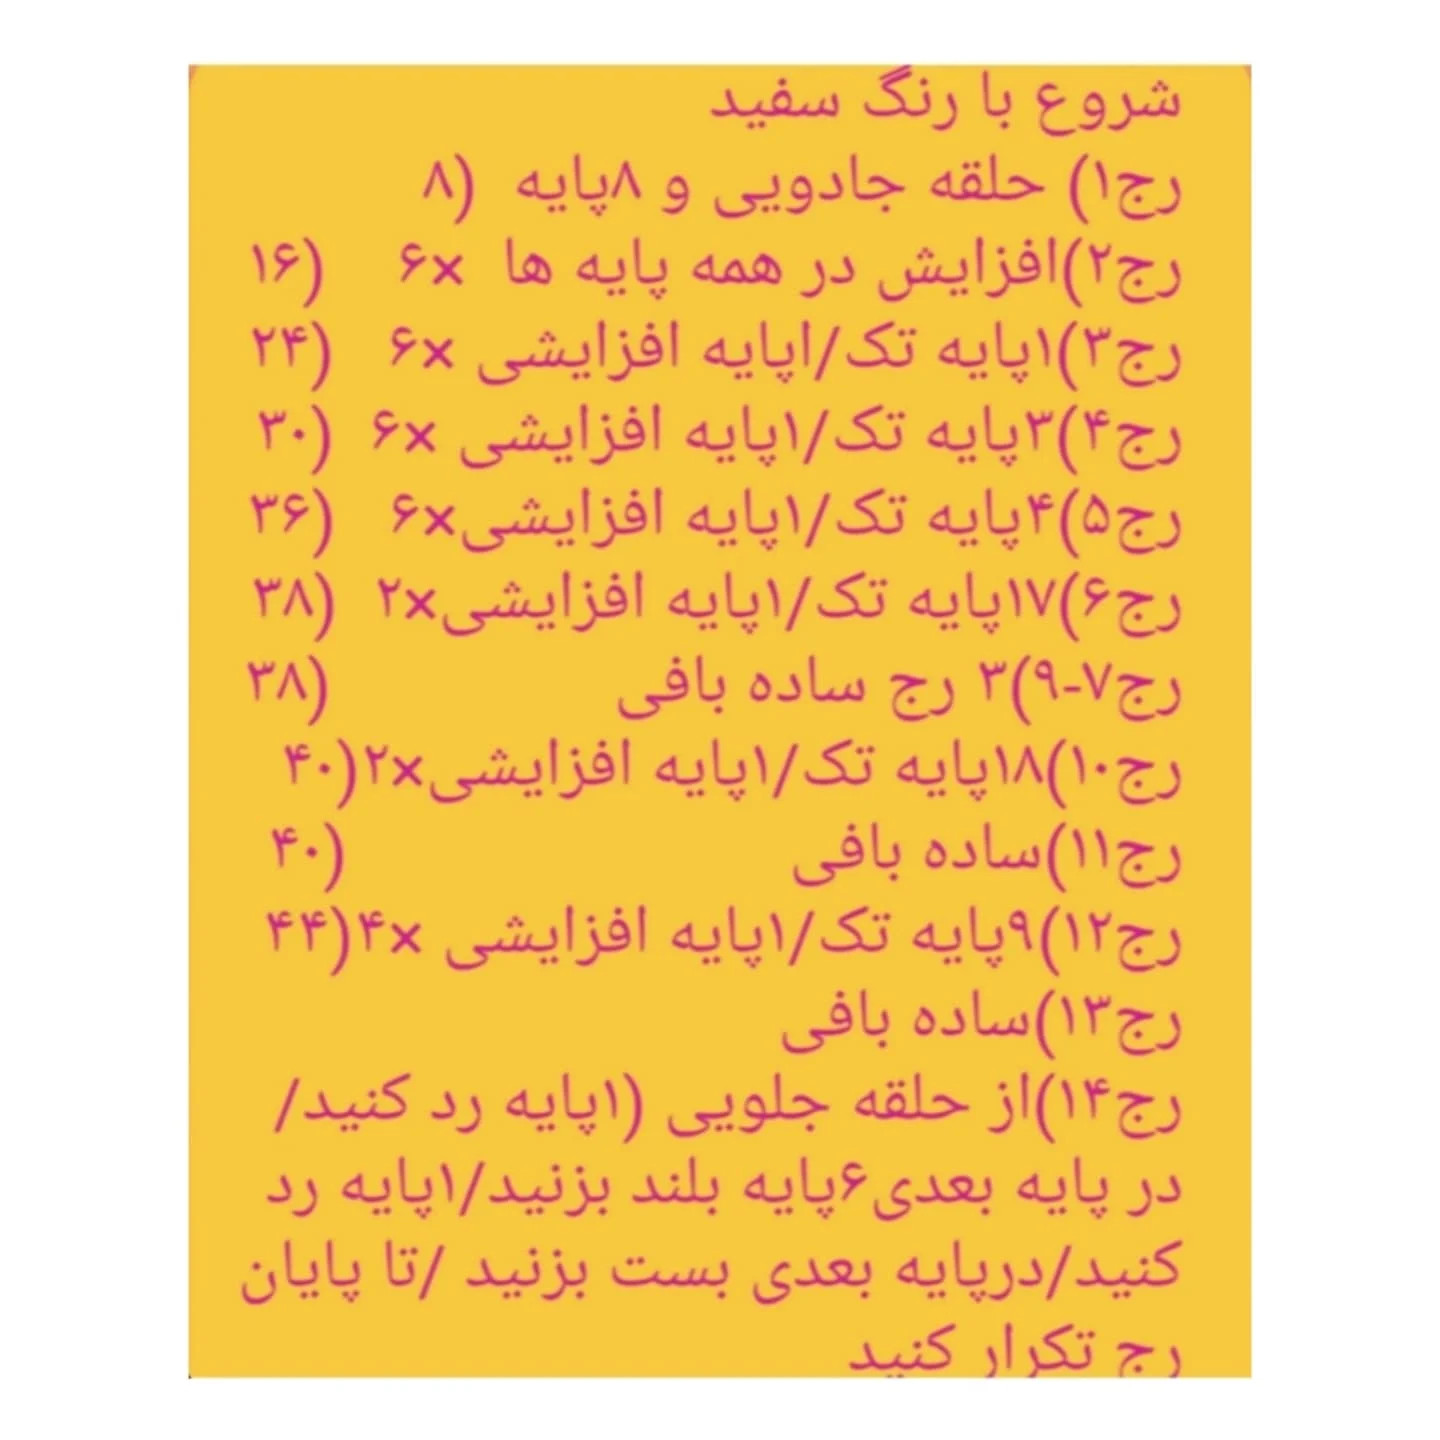 شروع با رنگ سفید
رج۱) حلقه جادویی و ۸پایه (۸
رج۲)افزایش در همه پایه ها ×۶ (۱۶
رج۳)۱پایه تک/اپایه افزایشی ×۶ (۲۴
رج۴)۳پایه تک/۱پایه افزایشی ×۶ (۳۰
رج۵)۴پایه تک/۱پایه افزایشی×۶ (۳۶
رج۶)۱۷پایه تک/۱پایه افزایشی×۲ (۳۸
رج۷-۹)۳ رج ساده بافی (۳۸
رج۱۰)۱۸پایه تک/۱پایه افزایشی×۲(۴۰
رج۱۱)ساده بافی (۴۰
رج۱۲)۹پایه تک/۱پایه افزایشی ×۴(۴۴
رج۱۳)ساده بافی
رج۱۴)از حلقه جلویی (۱پایه رد کنید/
در پایه بعدی۶پایه بلند بزنید/۱پایه رد
کنید/درپایه بعدی بست بزنید /تا پایان
رج تکرار کنید